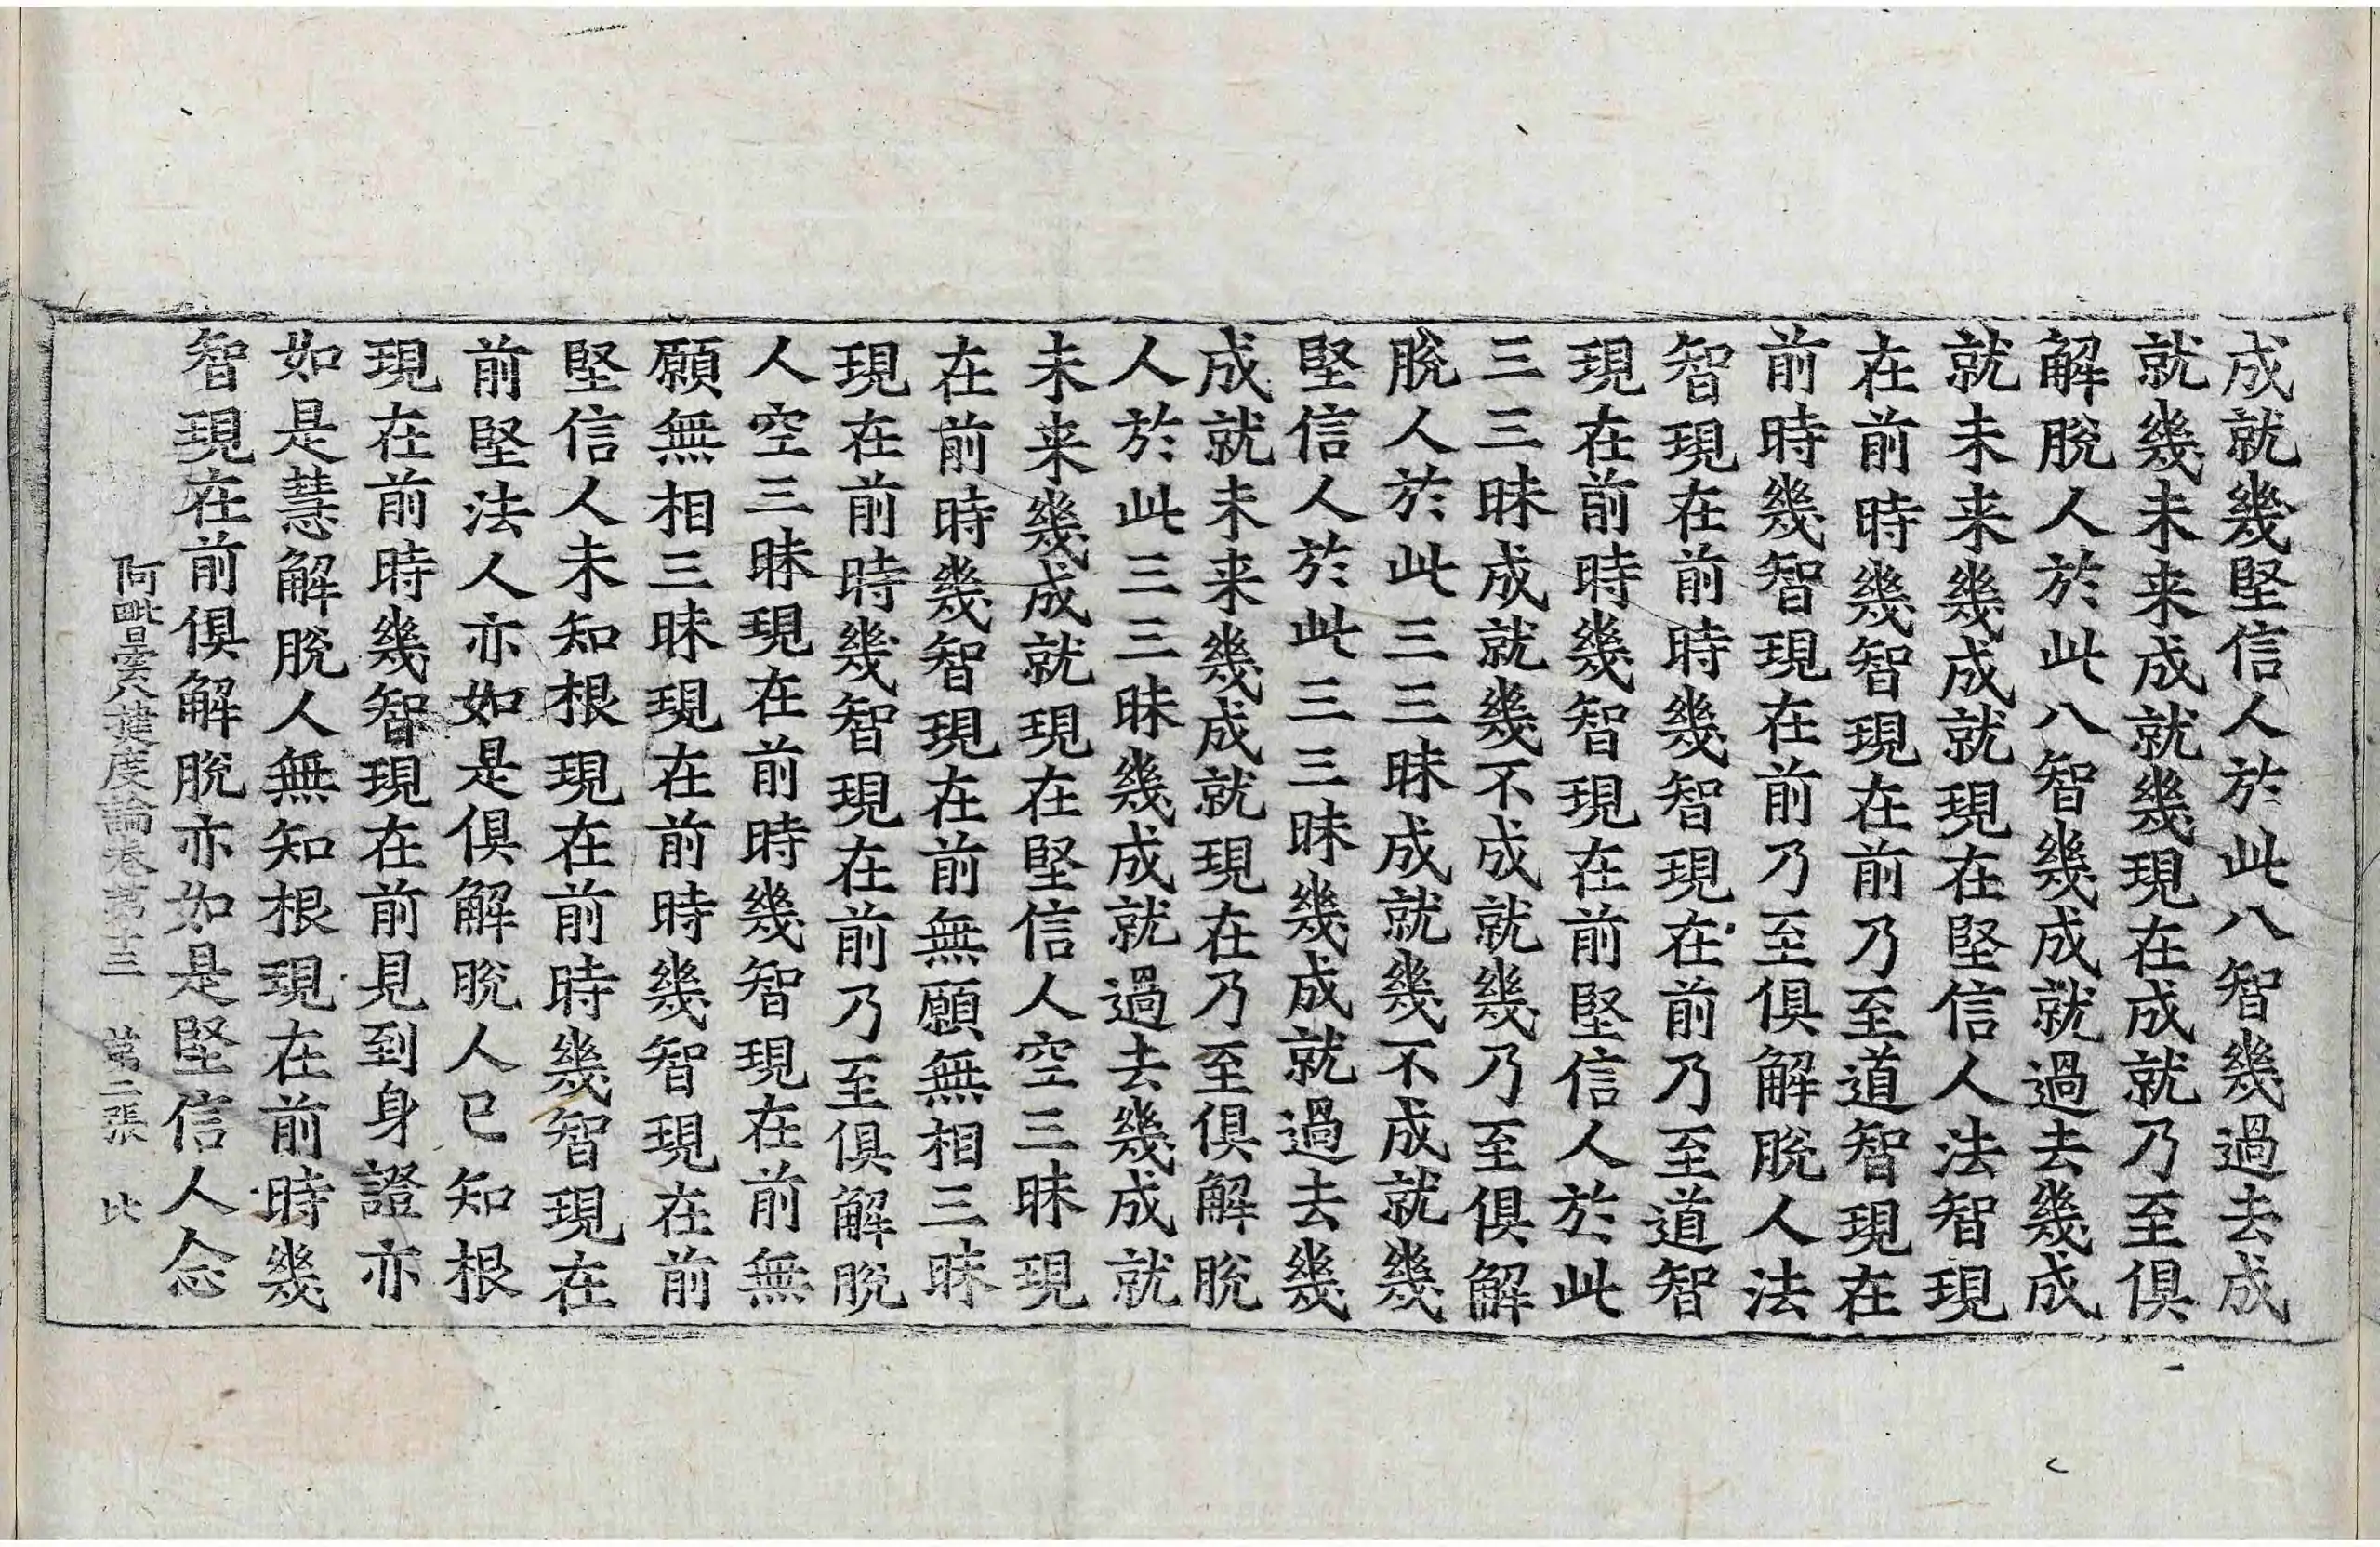 成就幾堅信人於此八智幾過去成
就幾未来成就幾現在成就乃至俱
解脫人於此八智幾成就過去幾成
就未来幾成就現在堅信人法智現
在前時幾智現在前乃至道智現在
前時幾智現在前乃至俱解脫人法
智現在前時幾智現在前乃至道智
現在前時幾智現在前堅信人於此
三三昧成就幾不成就幾乃至俱解
脫人於此三三昧成就幾不成就幾
堅信人於此三三昧幾成就過去幾
成就未来幾成就現在乃至俱解脫
人於此三三昧幾成就過去幾成就
未来幾成就現在堅信人空三昧現
在前時幾智現在前無願無相三昧
現在前時幾智現在前乃至俱解脫
人空三昧現在前時幾智現在前無
願無相三昧現在前時幾智現在前
堅信人未知根現在前時幾智現在
前堅法人亦如是俱解脫人已知根
現在前時幾智現在前見到身證亦
如是慧解脫人無知根現在前時幾
智現在前俱解脫亦如是堅信人念
阿毗曇八揵度論卷苐十三 苐二張 比